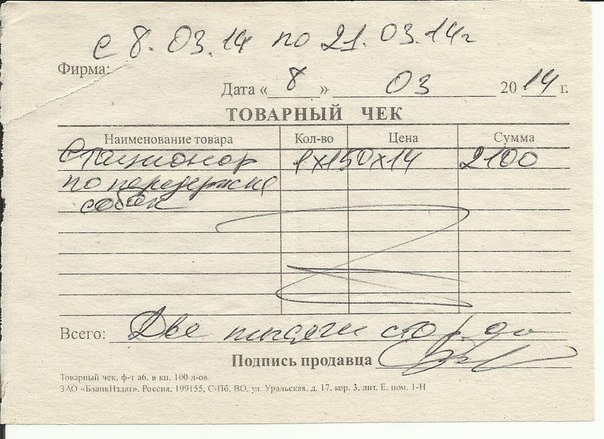 с 8.03.14 по 21.03.14г
Фирма:
Дата « 8 » 03 2014 г.
ТОВАРНЫЙ ЧЕК
Наименование товара Кол-во Цена Сумма
Стационар 1х150х14 2100
по передержке
собак
Всего: Две тысячи сто р.
Подпись продавца
Товарный чек, ф-т а6, в кп. 100 л-ов
ЗАО «БланкИздат», Россия, 199155, С-Пб, ВО, ул. Уральская, д. 17, кор. 3, лит. Е, пом. 1-Н